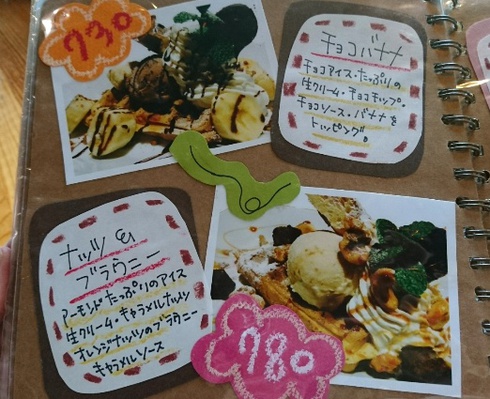 730
チョコバナナ
チョコアイス・たっぷりの
生クリーム・チョコチップ。
チョコソース・バナナを
トッピング。
ナッツ&
ブラウニー
アーモンドたっぷりのアイス
生クリーム・キャラメルナッツ
オレンジナッツのブラウニー
キャラメルソース
780